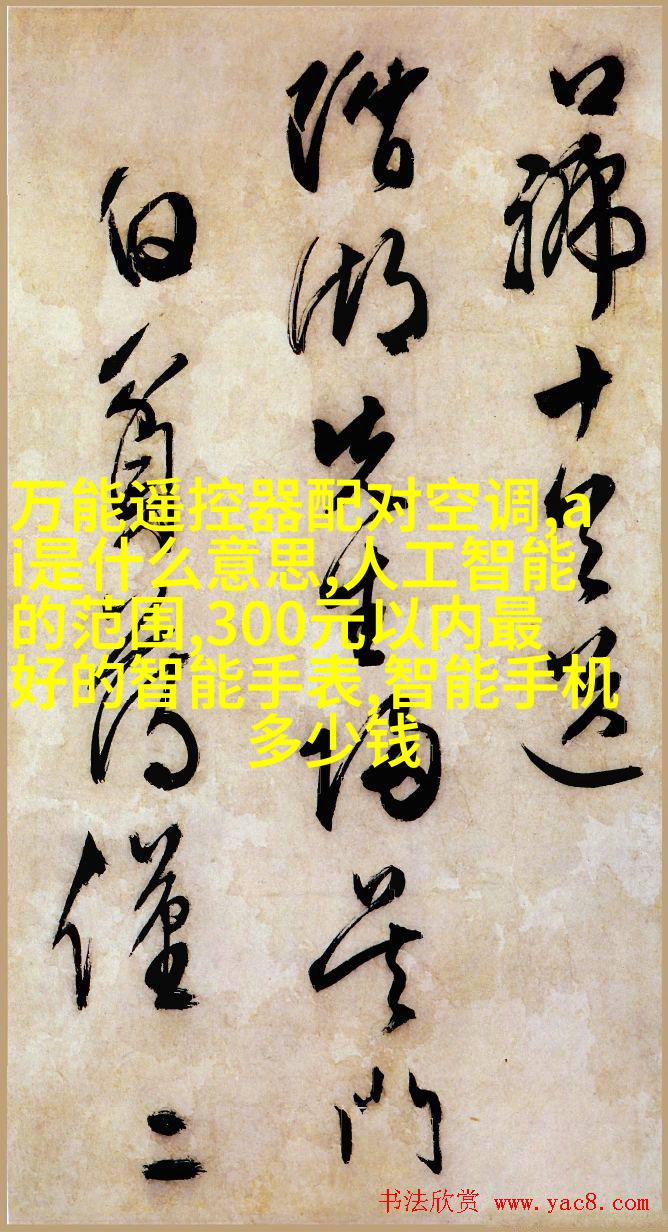 口號十送
湖先生歸吴門
白得僅二
万能遥控器配对空调,a
i是什么意思,人工智能
的范围,300元以内最
好的智能手表,智能手机
多少钱
书法欣赏 www.yac8.com